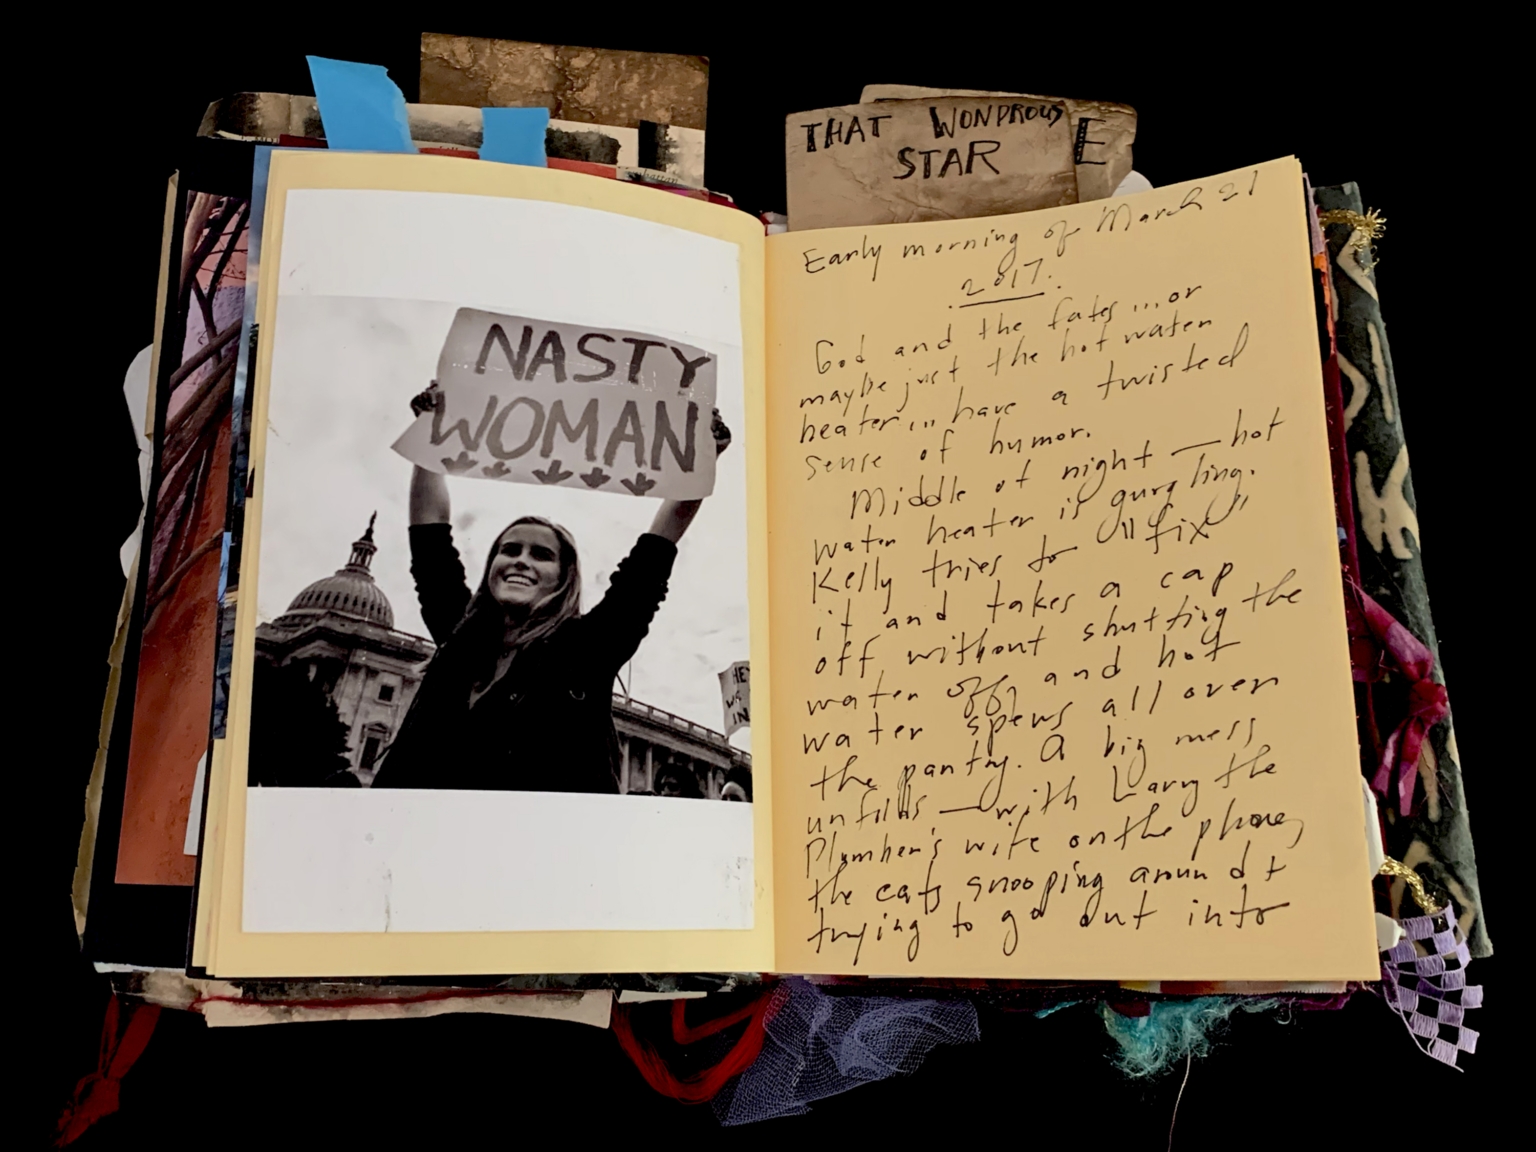 THAT WONDROUS
STAR
E
NASTY
WOMAN
HEY
IN
Early morning of March 21
2017.
God and the fates...or
maybe just the hot water
heater...have a twisted
sense of humor.
Middle of night — hot
water heater is gurgling.
Kelly tries to "fix"
it and takes a cap
off, without shutting the
water off, and hot
water spews all over
the pantry. A big mess
unfolds — with Larry the
Plumber's wife on the phone,
the cats snooping around +
trying to go out into